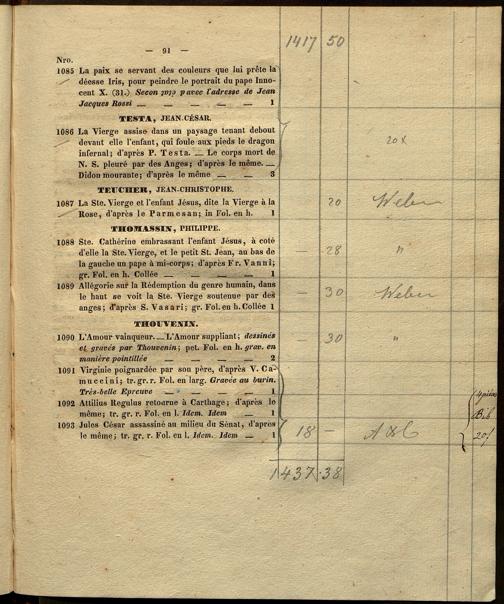 — 91 —
1417 50
Nro.
1085 La paix se servant des couleurs que lui prête la
déesse Iris, pour peindre le portrait du pape Inno-
cent X. (31.) Secon avec l'adresse de Jean
Jacques Rossi — — — — — 1
TESTA, JEAN-CÉSAR.
1086 La Vierge assise dans un paysage tenant debout
devant elle l'enfant, qui foule aux pieds le dragon
infernal; d'après P. Testa. — Le corps mort de
N. S. pleuré par des Anges; d'après le même. —
Didon mourante; d'après le même — — 3
20x
TEUCHER, JEAN-CHRISTOPHE.
1087 La Ste. Vierge et l'enfant Jésus, dite la Vierge à la
Rose, d'après le Parmesan; in Fol. en h. 1
— 20 Weber
THOMASSIN, PHILIPPE.
1088 Ste. Cathérine embrassant l'enfant Jésus, à coté
d'elle la Ste. Vierge, et le petit St. Jean, au bas de
la gauche un pape à mi-corps; d'après Fr. Vanni;
gr. Fol. en h. Collée — — — — 1
— 28 "
1089 Allégorie sur la Rédemption du genre humain, dans
le haut se voit la Ste. Vierge soutenue par des
anges; d'après S. Vasari; gr. Fol. en h. Collée 1
— 30 Weber
THOUVENIN.
1090 L'Amour vainqueur. — L'Amour suppliant; dessinés
et gravés par Thouvenin; pet. Fol. en h. grav. en
manière pointillée — — — — 2
— 30 "
1091 Virginie poignardée par son père, d'après V. Ca-
muccini; tr. gr. r. Fol. en larg. Gravée au burin.
Très-belle Epreuve — — — — 1
1092 Attilius Regulus retourne à Carthage; d'après le
même; tr. gr. r. Fol. en l. Idem. Idem — 1
1093 Jules César assassiné au milieu du Sénat, d'après
le même; tr. gr. r. Fol. en l. Idem. Idem — 1
18 — A&C
20f
1437 · 38